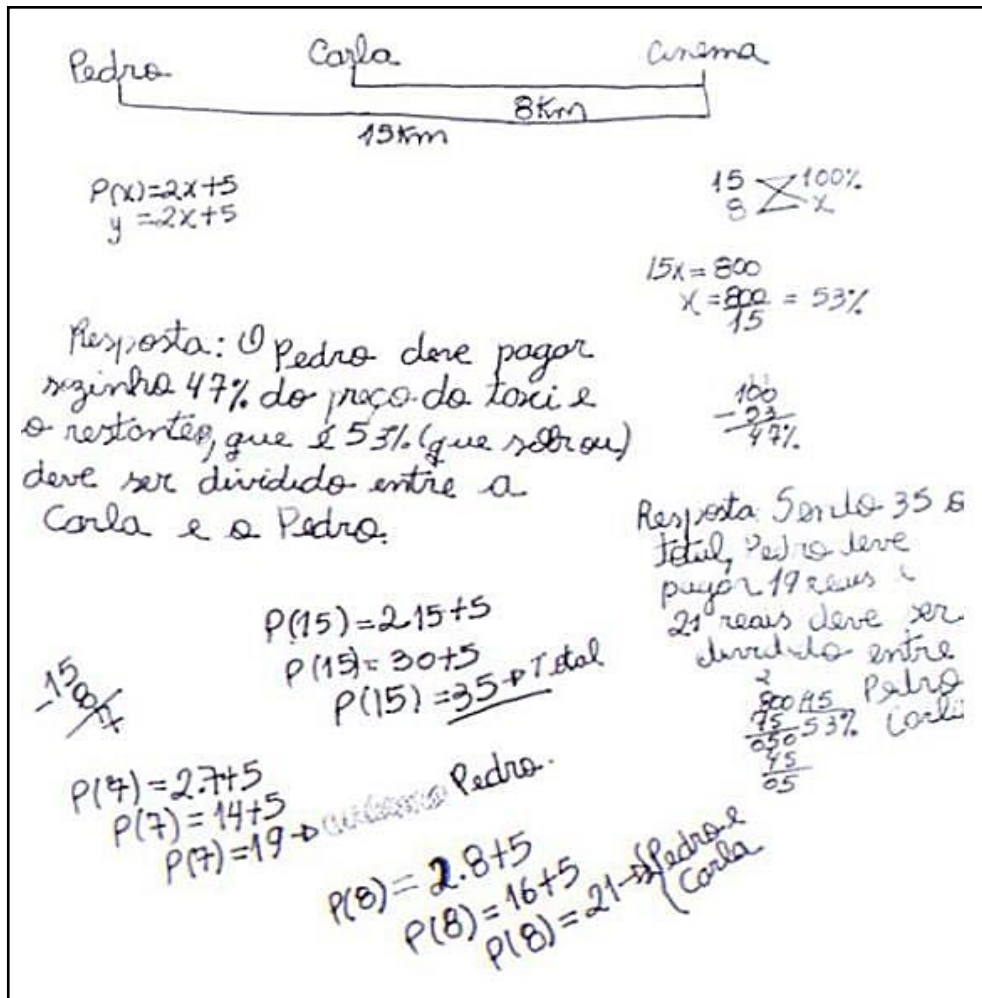 Pedro Carla Cinema
8Km
15Km
P(x)=2x+5
y=2x+5
15 100%
8 x
15x=800
x=800/15 = 53%
Resposta: O Pedro deve pagar
sozinho 47% do preço do taxi e
o restante, que é 53% (que sobrou)
deve ser dividido entre a
Carla e o Pedro.
100
- 53
47%
Resposta Sendo 35 o
total, Pedro deve
pagar 19 reais e
21 reais deve ser
dividido entre
Pedro
Carla
2
800 15
75 53%
050
45
05
P(15)=2.15+5
P(15)=30+5
P(15)=35→Total
-15
8
7
P(7)=2.7+5
P(7)=14+5
P(7)=19→ Pedro.
P(8)=2.8+5
P(8)=16+5
P(8)=21→{Pedro e
Carla